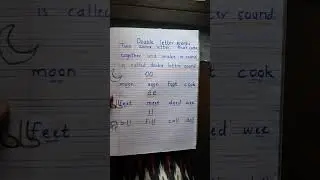 Double letter sound
Two same letter that come
together and makes a sound
is called double letter sound.
oo
moon noon foot cook
ee
feet meet deed wee
ll
bell fill call doll
is called
letter sound.
moon
cook
feet
wee